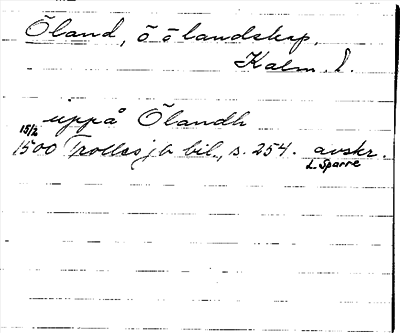 Öland, ö o landskap,
Kalm. l.
uppå Ölandh
15/2
1500 Trolles jb bil., s. 254. avskr.
L. Sparre